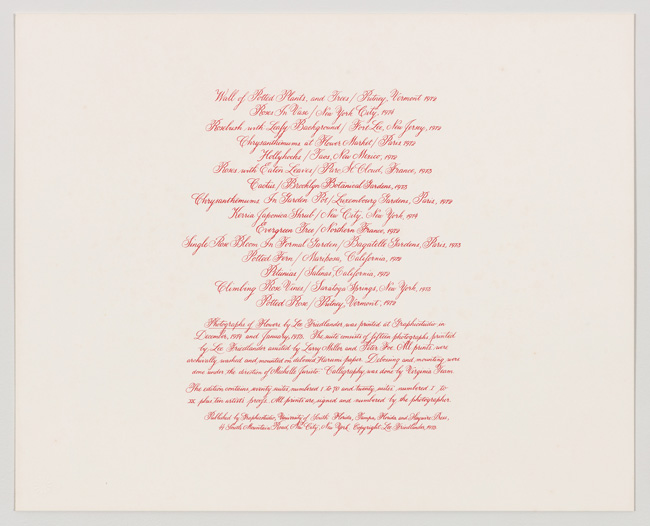 Wall of Potted Plants, and Trees / Putney, Vermont 1972
Roses In Vase / New York City, 1974
Rosebush with Leafy Background / Fort Lee, New Jersey, 1972
Chrysanthemums at Flower Market / Paris 1972
Hollyhocks / Taos, New Mexico, 1972
Roses with Eaten Leaves / Parc St. Cloud, France, 1973
Cactus / Brooklyn Botanical Gardens, 1973
Chrysanthemums In Garden Pot / Luxembourg Gardens, Paris, 1972
Kerria Japonica Shrub / New City, New York, 1974
Evergreen Tree / Northern France, 1972
Single Rose Bloom In Formal Garden / Bagatelle Gardens, Paris, 1973
Potted Fern / Mariposa, California, 1972
Petunias / Salinas, California, 1972
Climbing Rose Vines / Saratoga Springs, New York, 1973
Potted Rose / Putney, Vermont, 1972
Photographs of Flowers by Lee Friedlander, was printed at Graphicstudio in
December, 1974 and January, 1975. The suite consists of fifteen photographs printed
by Lee Friedlander assisted by Larry Miller and Peter Foe. All prints were
archivally washed and mounted on debossed paper. Debossing and mounting were
done under the direction of Michelle Juristo. Calligraphy was done by Virginia
The edition contains seventy suites, numbered 1 to 70 and twenty suites numbered I to
XX plus ten artist's proofs. All prints are signed and numbered by the photographer.
Published by Graphicstudio, University of South Florida, Tampa, Florida and Haywire Press,
44 South Mountain Road, New City, New York. Copyright Lee Friedlander, 1975